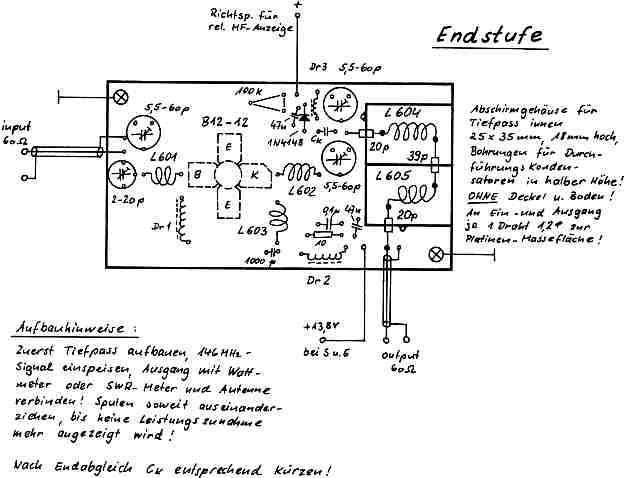 Richtsp. für
rel. HF-Anzeige
+
Endstufe
Dr3
5,5-60p
100k
5,5-60p
B12-12
47n
1N4148
CK
L604
20p
39p
input
60Ω
L601
E
B
K
E
L602
5,5-60p
L605
2-20p
Dr1
L603
0,1µ
47n
20p
10
1000p
Dr2
Abschirmgehäuse für
Tiefpass innen
25 x 35 mm, 18 mm hoch,
Bohrungen für Durch-
führungs Konden-
satoren in halber Höhe!
OHNE Deckel u. Boden!
An Ein- und Ausgang
je 1 Draht 1,2⌀ zur
Platinen-Massefläche!
+13,8V
bei S u. E
output
60Ω
Aufbauhinweise:
Zuerst Tiefpass aufbauen, 146 MHz-
Signal einspeisen, Ausgang mit Watt-
meter oder SWR-Meter und Antenne
verbinden! Spulen soweit auseinander-
ziehen, bis keine Leistungszunahme
mehr angezeigt wird!
Nach Endabgleich CK entsprechend kürzen!